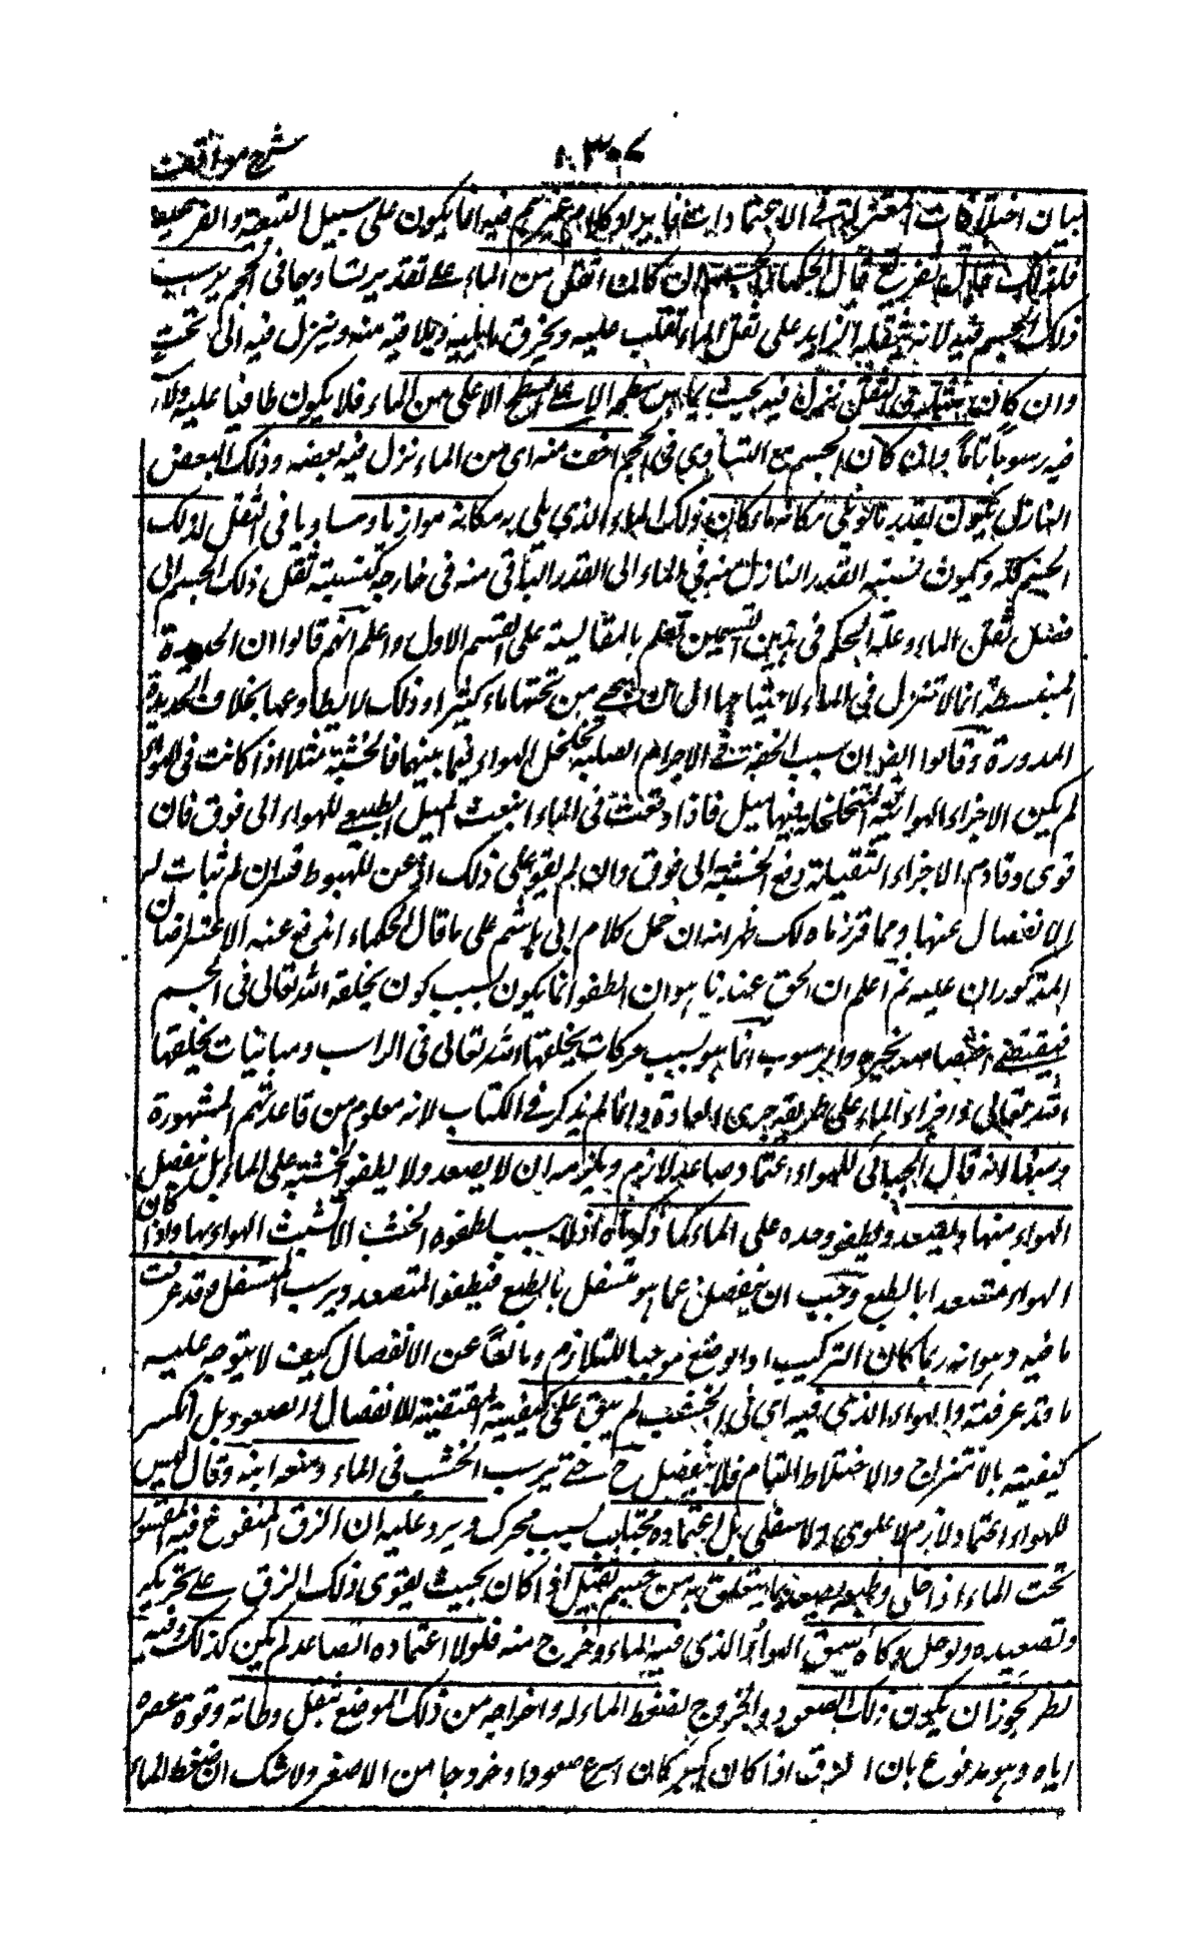 شرح مواقف
بيان اختلافات المعتزلة في الاعتمادات فايراد كلام غيرهم فيه انما يكون على سبيل التبعية والفرعية
فلذلك قال تفريع قال الحكماء الجسم ان كان اثقل من الماء على تقدير تساويهما في الحجم يرسب
ذلك الجسم فيه لانه بثقله الزايد على ثقل الماء تغلب عليه ويخرق ما يليه ويلاقيه منه وينزل فيه الى تحت
وان كان مثله في الثقل نزل فيه بحيث يماس سطحه الاعلى السطح الاعلى من الماء فلا يكون طافيا عليه ولا
فيه رسوبا تاما وان كان الجسم مع التساوي في الحجم اخف منه اى من الماء نزل فيه بعضه وذلك البعض
النازل يكون بقدر ما لو ملئ مكانه ماء كان ذلك الماء الذي ملئ به مكانه موازيا ومساويا في الثقل لذلك
الجسم كله ويكون نسبة القدر النازل منه في الماء الى القدر الباقي منه في خارجه كنسبة ثقل ذلك الجسم الى
فضل ثقل الماء وعلة الحكم في هذين القسمين تعلم بالمقايسة على القسم الاول واعلم انهم قالوا ان الحديدة
المنبسطة انما لا تنزل في الماء لاحتياجها الى ان ينحى من تحتها ماء كثيرا وذلك لا يطاوعها بخلاف الحديدة
المدورة وقالوا ايضا ان سبب الخفة في الاجرام الصلبة تخلخل الهواء فيما بينها فالخشبة مثلا اذا كانت في الهواء
لم يكن الاجزاء الهوائية المتخلخلة فيها ميل فاذا وقعت في الماء انبعث الميل الطبيعي للهواء الى فوق فان
قوى وقاوم الاجزاء الثقيلة رفع الخشبة الى فوق وان لم يقو على ذلك اذعن للهبوط قسرا ان لم ثبات له
الانفصال عنها ومما قررناه لك ظهر انه ان حمل كلام ابى هاشم على ما قال الحكماء اندفع عنه الاعتراضان
المذكوران عليه ثم اعلم ان الحق عندنا هو ان الطفو انما يكون بسبب كون يخلقه الله تعالى في الجسم
فيقتضي اختصاصه بحيزه والرسوب انما هو بسبب حركات يخلقها الله تعالى في الراسب ومباينات يخلقها
الله تعالى في اجزاء الماء على طريقة جرى العادة وانما لم يذكر في الكتاب لانه معلوم من قاعدتهم المشهورة
ومنها انه قال الجبائي للهواء اعتماد صاعد لازم ويلزمه ان لا يصعد ولا يطفو الخشبة على الماء بل ينفصل
الهواء منها ويصعد ويطفو وحده على الماء كما ذكرناه اذ لا سبب لطفوه الخشب الا تشبث الهواء بها واذا كان
الهواء متصعدا بالطبع وجب ان ينفصل عما هو متسفل بالطبع فيطفو المتصعد ويرسب المتسفل وقد عرفت
ما فيه وهو انه ربما كان التركيب او الوضع موجبا للتلازم ومانعا عن الانفصال كيف لا يتوجه عليه
ما قد عرفته والهواء الذي فيه اى في الخشب لم يبق على كيفيته المقتضية للانفصال والصعود بل انكسر
كيفيته بالامتزاج والاختلاط التام فلا ينفصل ح حتى يرسب الخشب في الماء ومنعه ابنه وقال ليس
للهواء اعتماد لازم لا علوي ولا سفلي بل اعتماده مجتلب بسبب محرك ويرد عليه ان الزق المنفوخ فيه المقسور
تحت الماء اذا خلى وطبعه يصعد بما يتعلق به من جسم ثقيل اذا كان بحيث يقوى ذلك الزق على تحريكه
وتصعيده ولو حل وكاؤه شق الهواء الذي فيه الماء وخرج منه فلولا اعتماده الصاعد لم يكن كذلك وفيه
نظر لجواز ان يكون ذلك الصعود والخروج لضغط الماء له واخراجه من ذلك الموضع بثقل وطاته وقوة عصره
اياه وهو مدفوع بان الزق اذا كان اكبر كان اسرع صعودا وخروجا من الاصغر ولا شك ان ضغط الماء